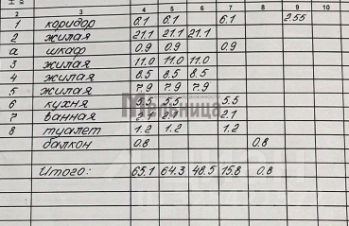 2 3 4 5 6 7 8 9 10
1 коридор 6.1 6.1 6.1 2.55
2 жилая 21.1 21.1 21.1
а шкаф 0.9 0.9 0.9
3 жилая 11.0 11.0 11.0
4 жилая 8.5 8.5 8.5
5 жилая 7.9 7.9 7.9
6 кухня 5.5 5.5 5.5
7 ванная 2.1 2.1 2.1
8 туалет 1.2 1.2 1.2
балкон 0.8 0.8
Итого: 65.1 64.3 48.5 15.8 0.8
Мельница